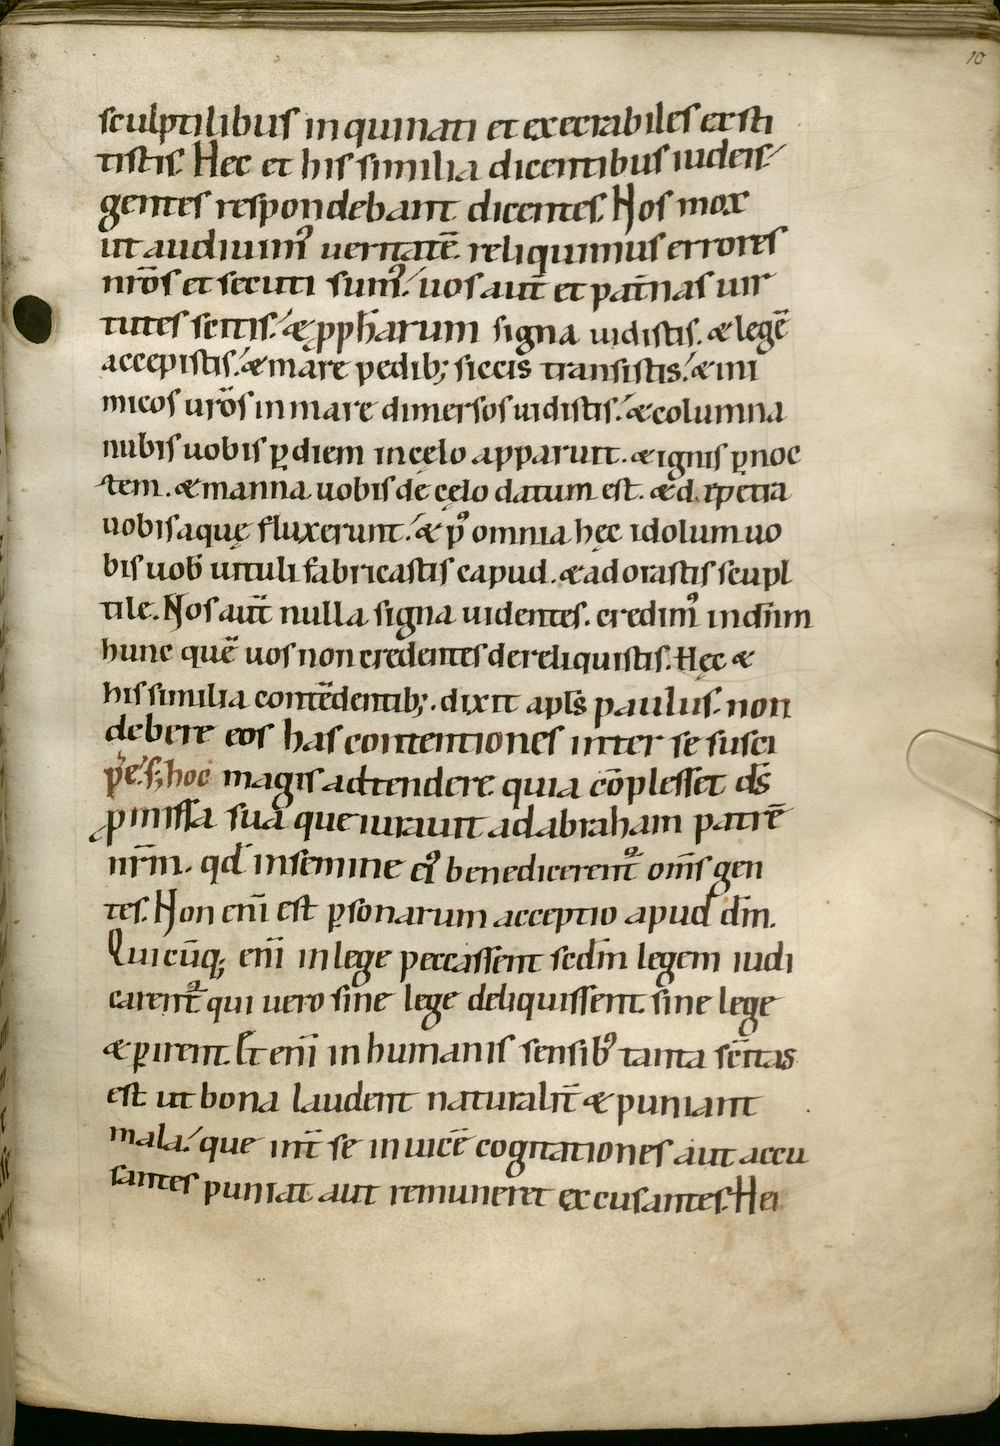 10
sculptilibus inquinati et execrabiles exsti
tistis. Hec et his similia dicentibus iudeis.
gentes respondebant dicentes. Nos mox
ut audiuim᷒ ueritatē. reliquimus errores
nr̄os et secuti sum᷒. uos aut̄ et pat̄nas uir
tutes scitis. & p̱ph̄arum signa uidistis. & legē
accepistis. & mare pedib; siccis transistis. & ini
micos ur̄os in mare dimersos uidistis. & columna
nubis uobis ꝑ diem in cęlo apparuit. & ignis ꝑ noc
tem. & manna uobis de cęlo datum est. & d. e petra
uobis aquę fluxerunt. & p᷒ omnia hęc idolum uo
bis uob̄ uituli fabricastis capud. & adorastis sculp
tile. Nos aut̄ nulla signa uidentes. credim᷒ in dn̄m
hunc quē uos non credentes dereliquistis. Hęc &
his similia contēdentib;. dixit apl̄s paulus. non
debere eos has contentiones inter se susci
pe. s; hoc magis adtendere. quia cōplesset ds̄
ꝓmissa sua que iurauit ad abraham patrē
nr̄m. qd̄ in semine ei᷒ benedicerent᷒ om̄s gen
tes. Non eni̅ est ꝑsonarum acceptio apud dm̄.
Quicūq; eni̅ in lege peccassent scdm̄ legem iudi
carent᷒ qui uero sine lege deliquissent. sine lege
& ꝑirent. Et eni̅ in humanis sensib᷒ tanta sc̄itas
est ut bona laudent naturalit̄ & puniant
mala. que int̄ se inuicē cogitationes aut accu
santes puniat aut remuneret excusantes. Hec